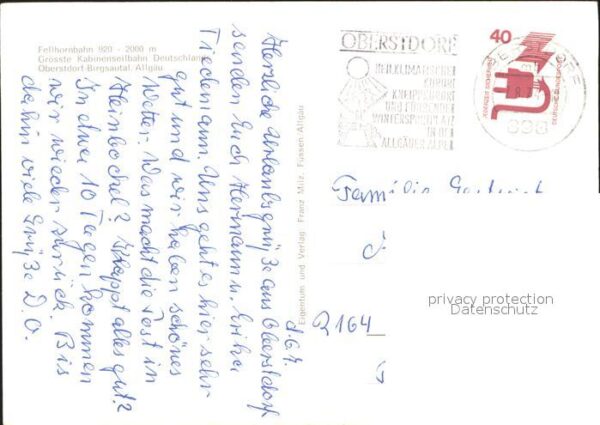 Fellhornbahn 920 - 2000 m
Grösste Kabinenseilbahn Deutschlands
Oberstdorf Birgsautal, Allgäu
Herzliche Urlaubsgrüße aus Oberstdorf
senden Euch Hermann u. Erika
Tiedemann. Uns geht es hier sehr
gut und wir haben schönes
Wetter. Was macht die Post in
Heinbockel? Klappt alles gut?
In etwa 10 Tagen kommen
wir wieder zurück. Bis
dahin viele Grüße D.O.
Eigentum und Verlag Franz Milz, Füssen-Allgäu
OBERSTDORF
HEILKLIMATISCHER
KURORT
KNEIPPKURORT
UND FÜHRENDER
WINTERSPORTPLATZ
IN DEN
ALLGÄUER ALPEN
40
JEDERZEIT SICHERHEIT
DEUTSCHE BUNDESPOST
898
Familie
2164
privacy protection
Datenschutz